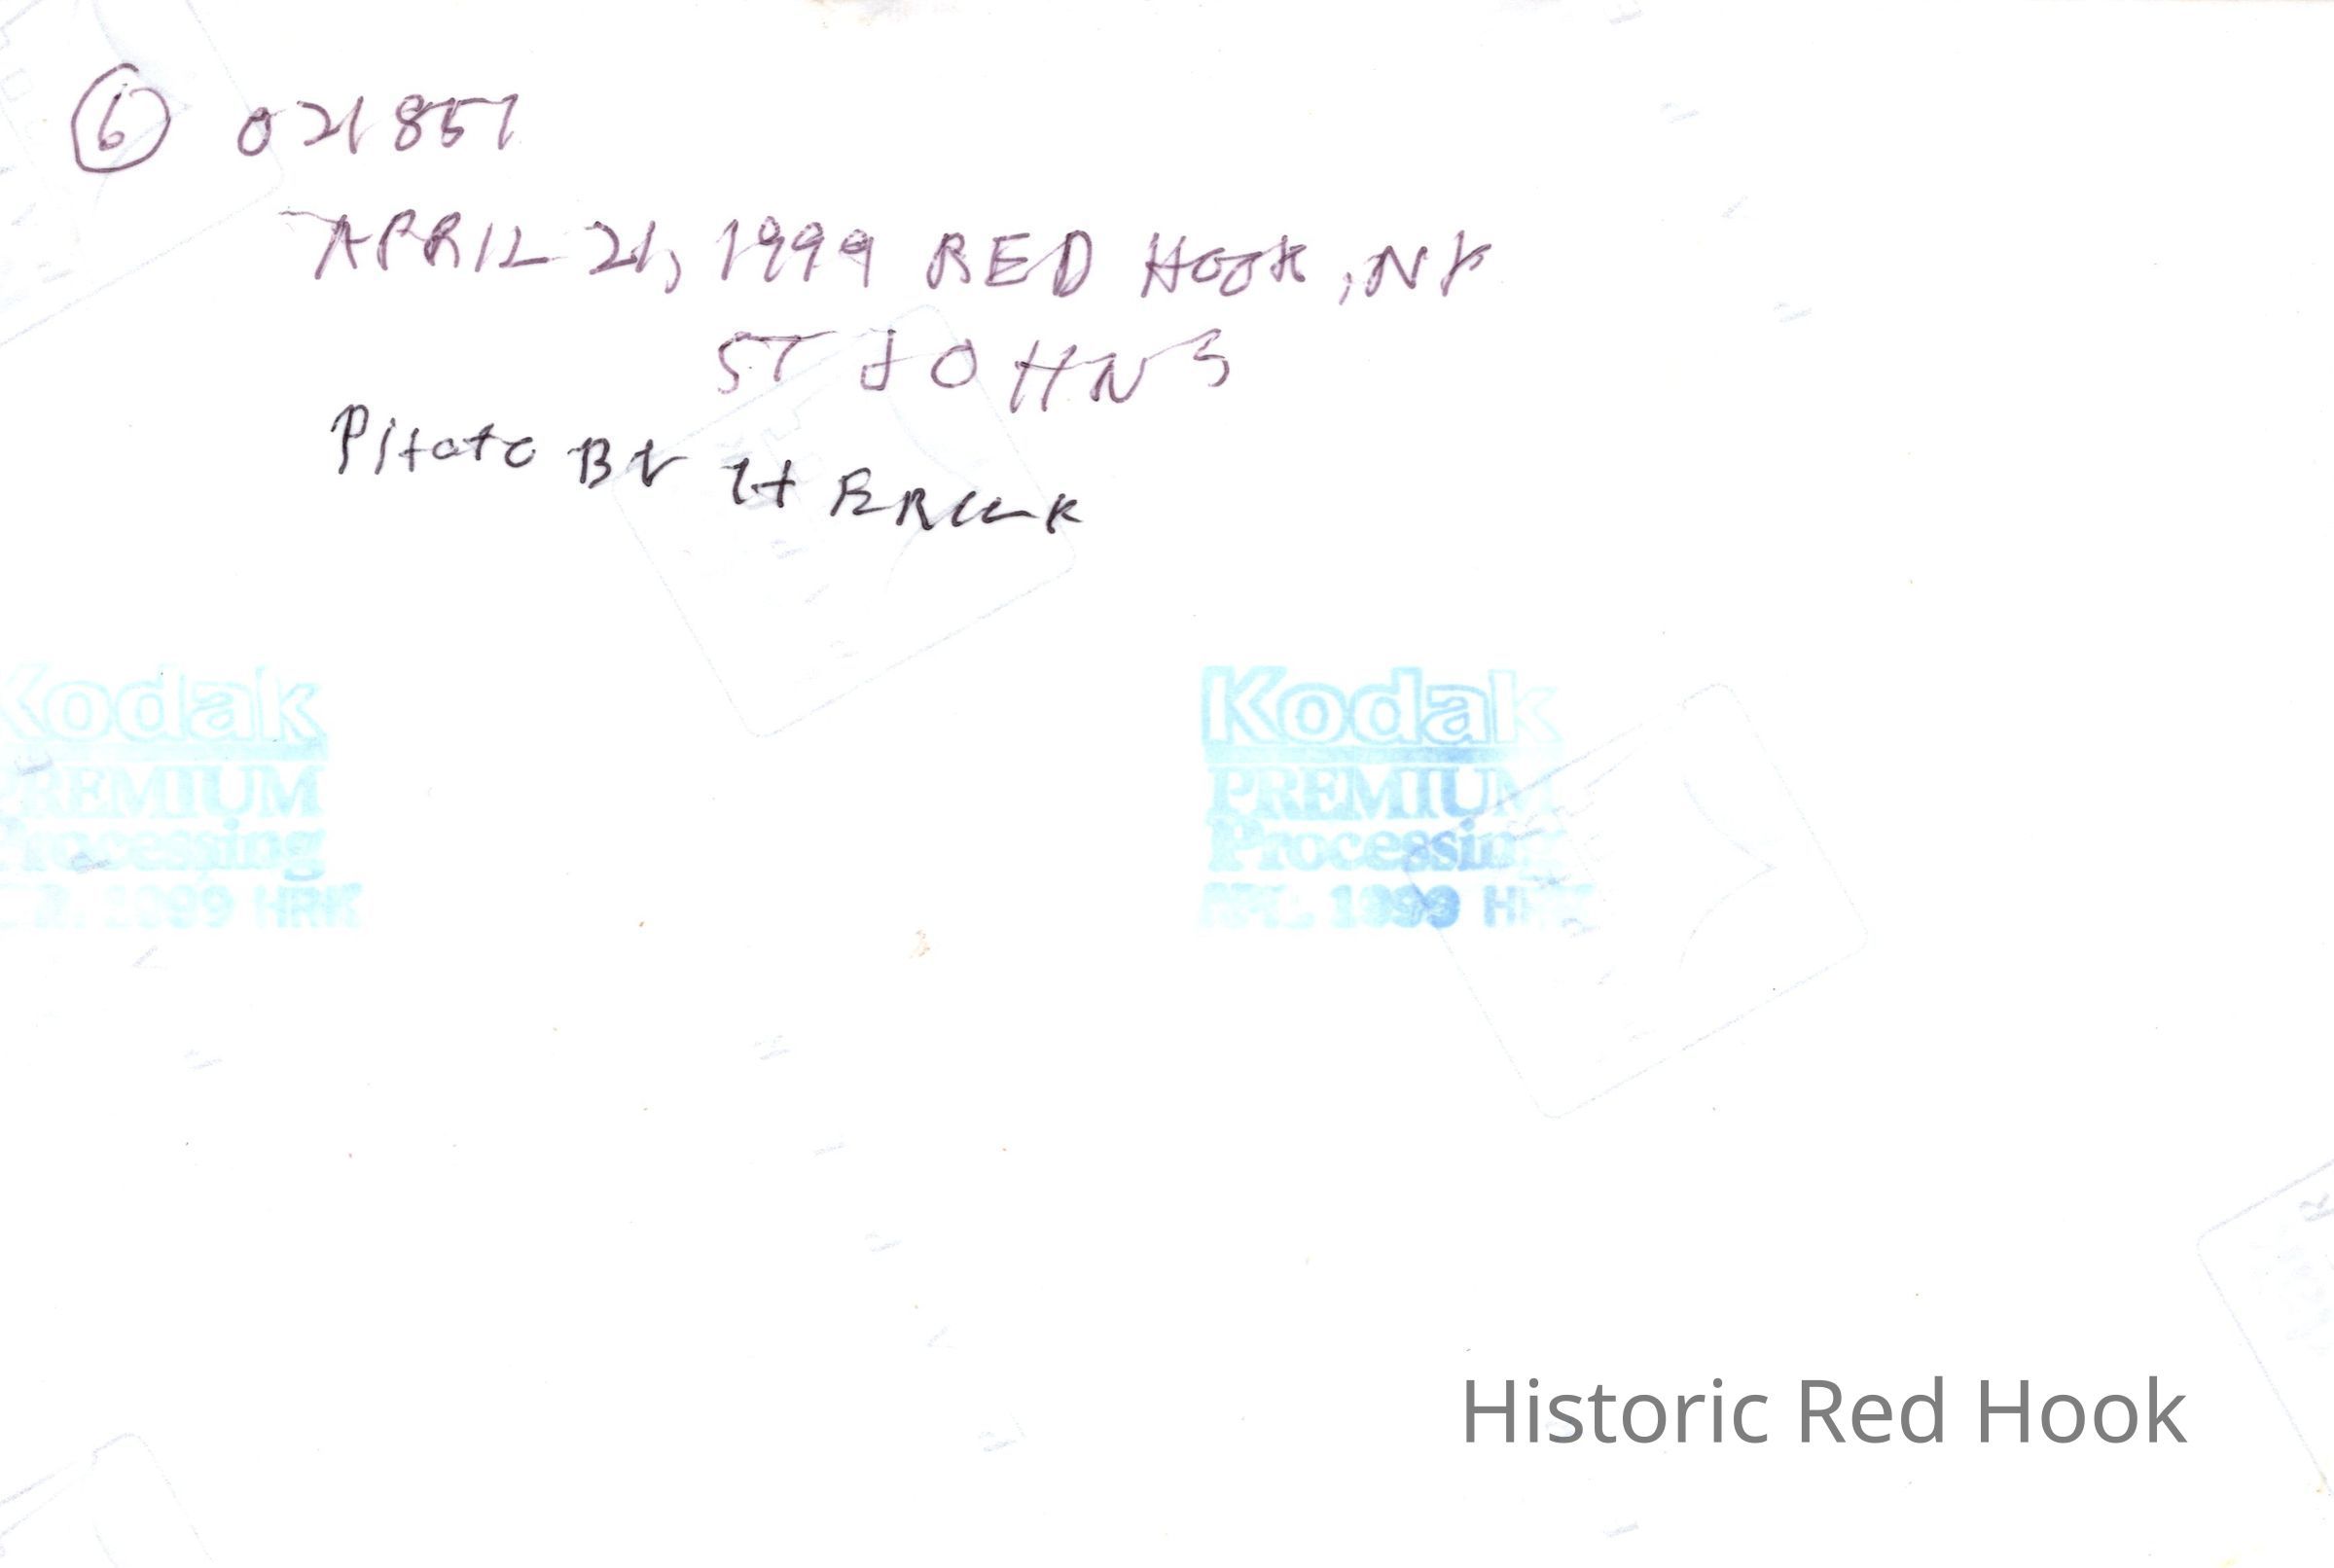 6 021851
APRIL 21, 1999 RED HOOK, NY
ST JOHNS
PHOTO BY
Kodak
PREMIUM
Processing
1999 HRK
Kodak
PREMIUM
Processing
1999
Historic Red Hook